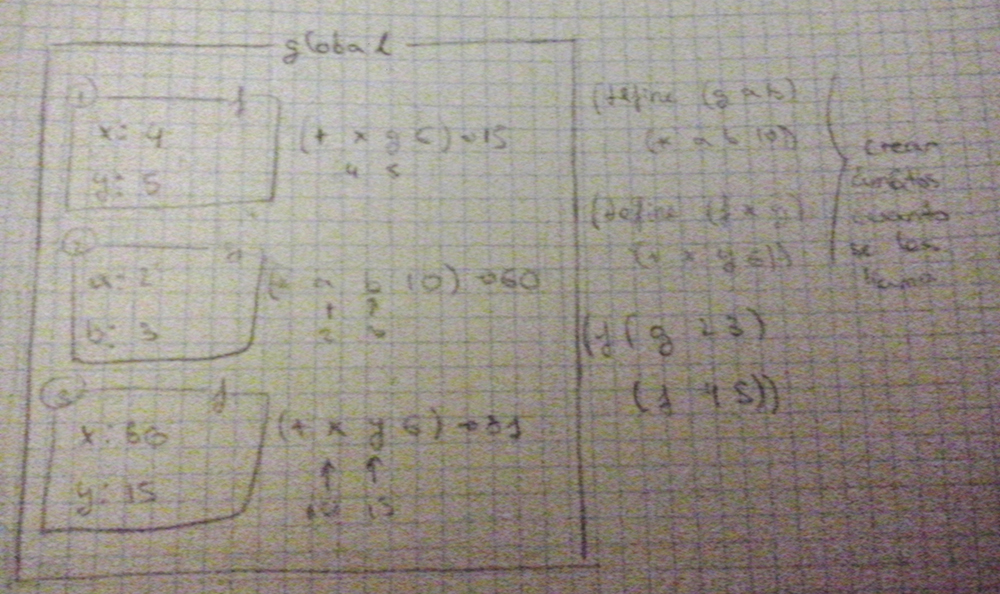 global
1 f
x: 4
y: 5
(+ x y 6) → 15
4 5
2
a: 2
b: 3
a b 10) → 60
2
3 f
x: 60
y: 15
(+ x y 6) → 81
↑ ↑
15
(define (g a b)
(* a b 10))
(define (f x y)
(+ x y 6))
crear
ámbitos
cuando
se les
llama
(f (g 2 3)
(f 4 5))